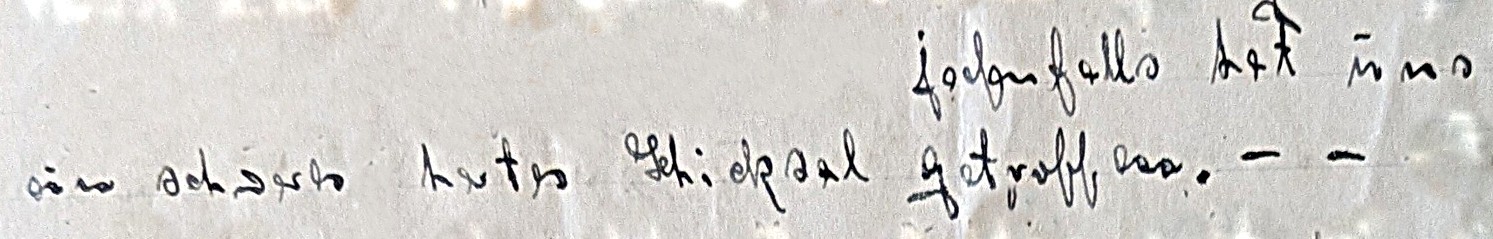 jedenfalls hat uns
ein schwere hartes Schicksal getroffen. – –